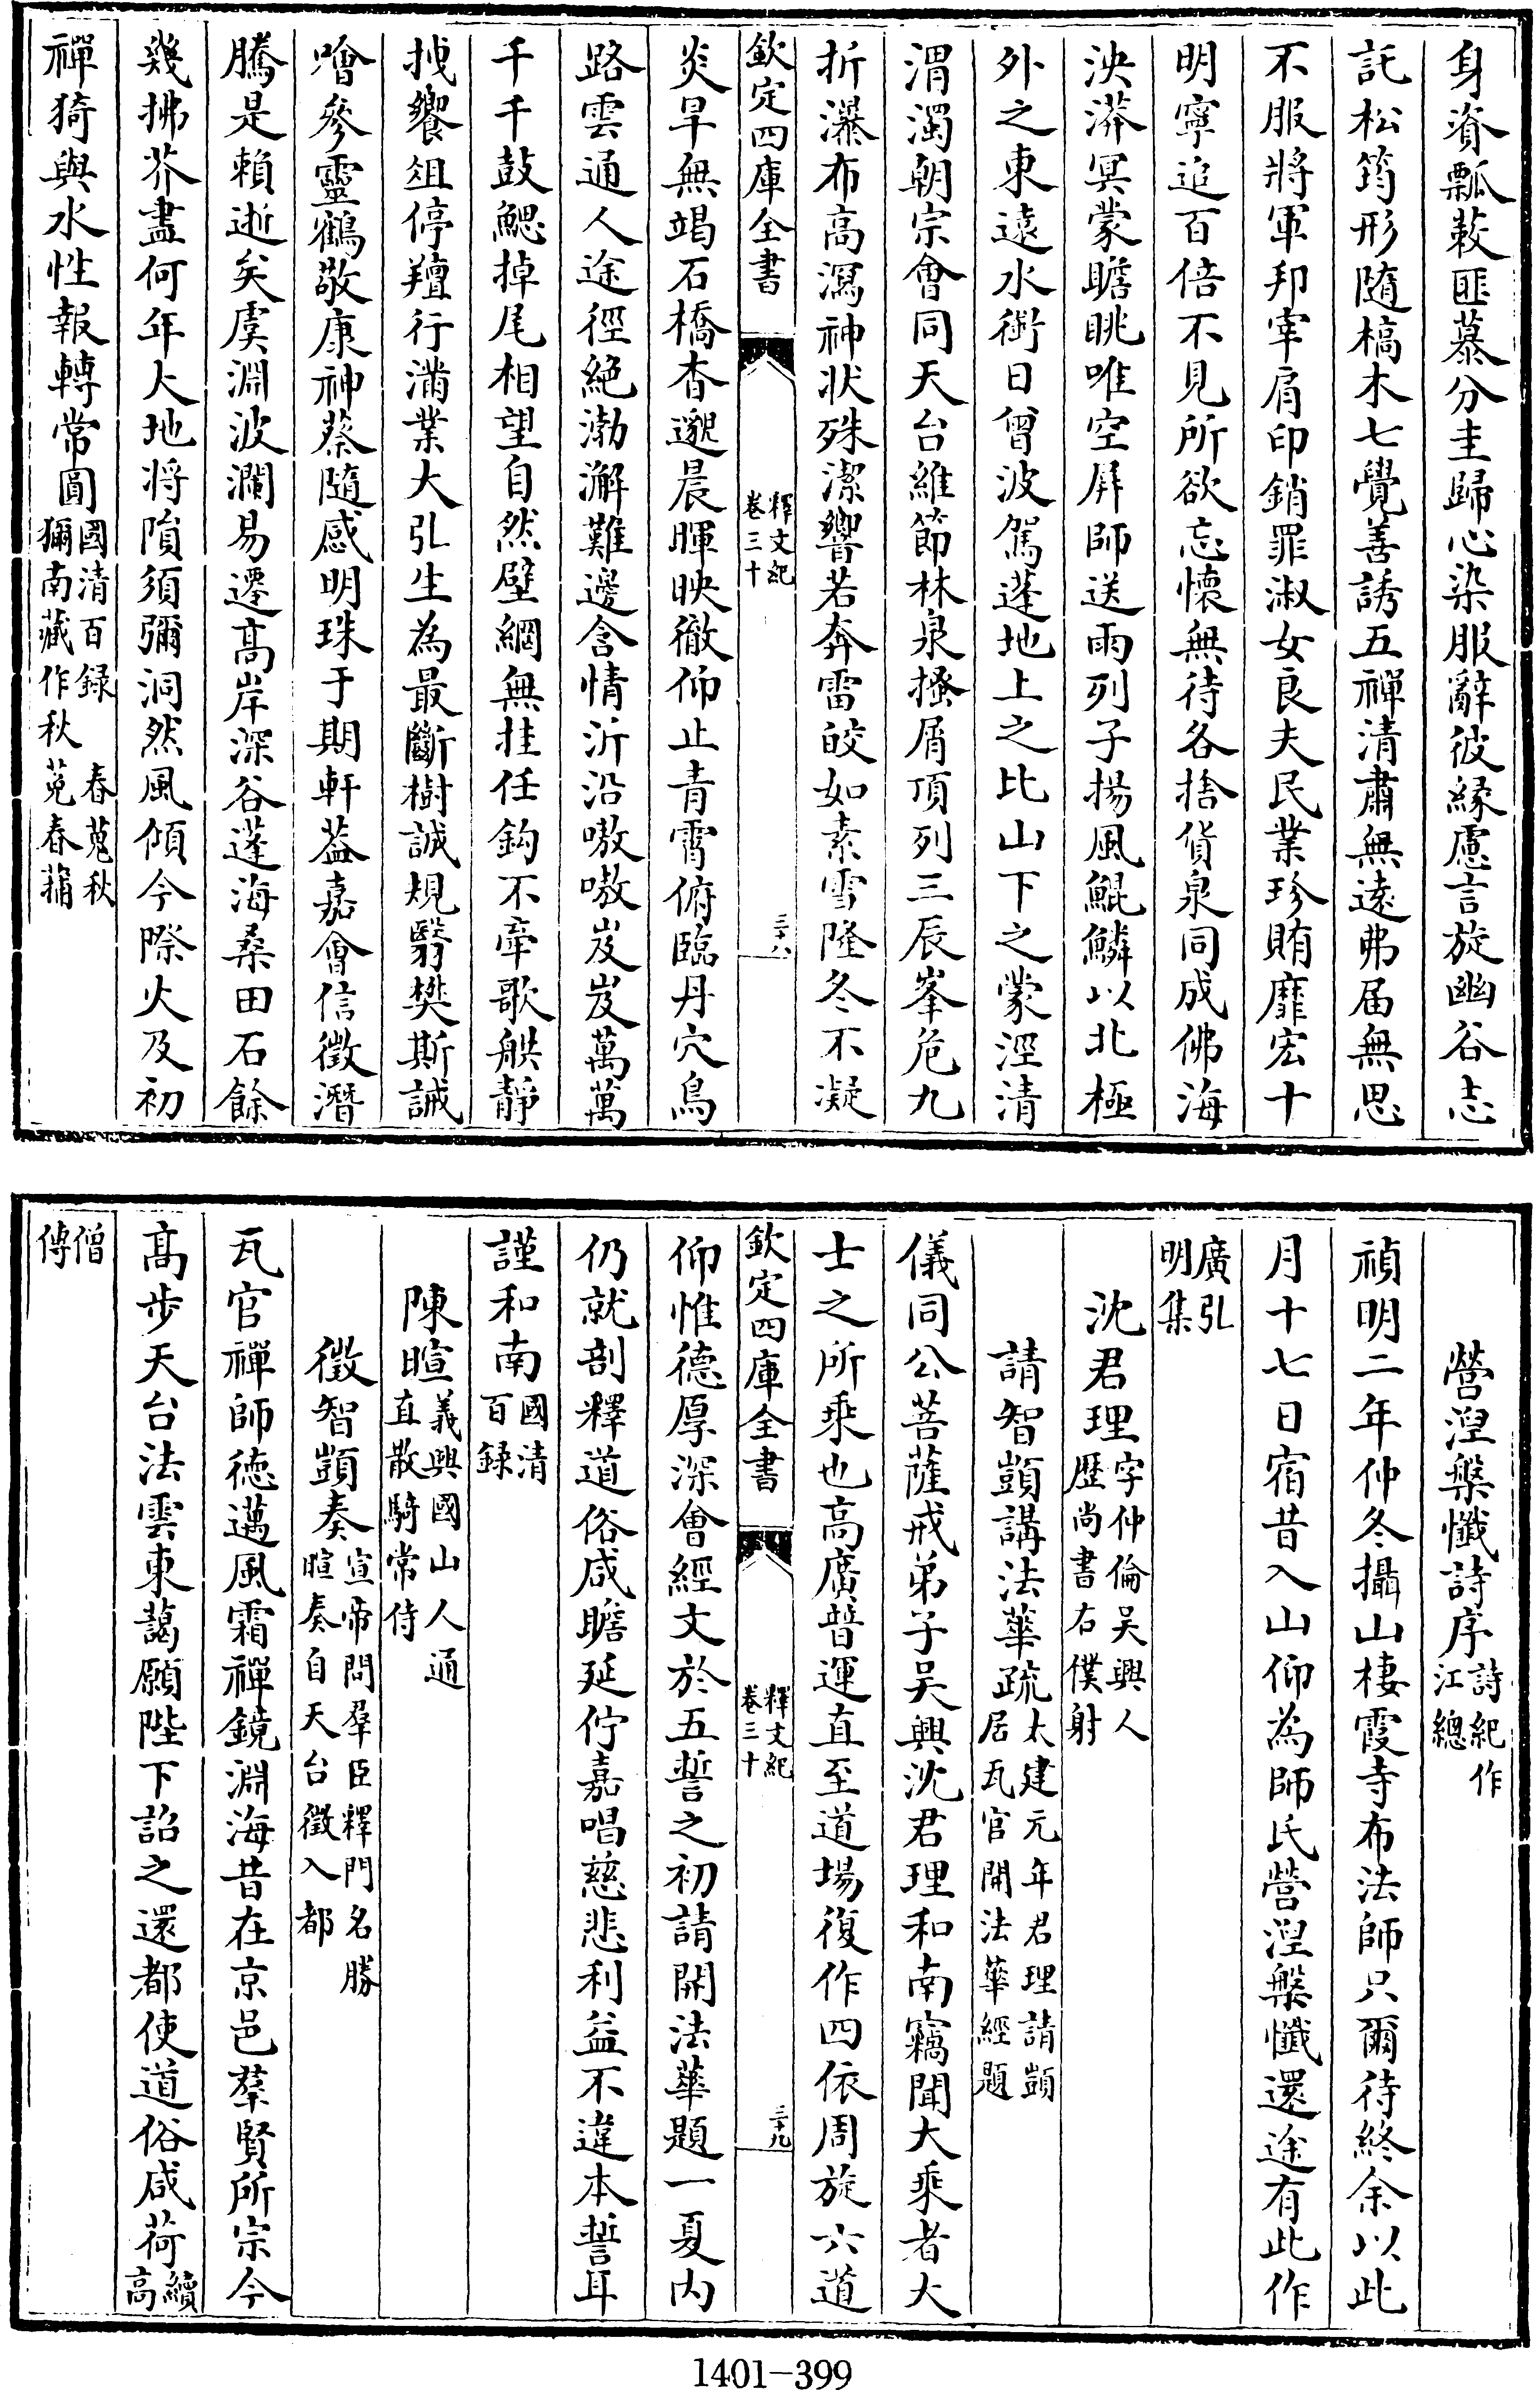 身資瓢蔌匪慕分圭歸心染服辭彼緣慮言旋幽谷志
託松筠形隨槁木七覺善誘五禪清肅無遠弗届無思
不服將軍邦宰肩印銷罪淑女良夫民業珍賄靡宏十
明寧追百倍不見所欲忘懷無待各捨貨泉同成佛海
泱漭冥蒙瞻眺唯空屏師送雨列子揚風鯤鱗以北極
外之東遠水銜日曾波駕蓬地上之比山下之蒙涇清
渭濁朝宗會同天台維節林泉搔屑頂列三辰峯危九
折瀑布高瀉神狀殊潔響若奔雷皎如素雪隆冬不凝
欽定四庫全書
釋文紀
卷三十
三十八
炎旱無竭石橋杳邈晨暉映徹仰止青霄俯臨丹穴鳥
路雲通人途徑絶渤澥難邊含情泝沿嗷嗷岌岌萬萬
千千鼓鰓掉尾相望自然壁網無挂任鈎不牽歌艇靜
拽饗俎停羶行滿業大引生為最斷樹誠規翳樊斯誡
噲參靈鶴敬康神蔡隨感明珠于期軒蓋嘉會信徵潛
騰是賴逝矣虞淵波瀾易遷高岸深谷蓬海桑田石餘
幾拂芥盡何年大地將隤須彌洞然風傾今際火及初
禪猗與水性報轉常圓國清百録　春蒐秋
獮南藏作秋蒐春蒐
營涅槃懺詩序詩紀作
江總
禎明二年仲冬攝山棲霞寺布法師只爾待終余以此
月十七日宿昔入山仰為師氏營涅槃懺還途有此作
廣弘
明集
沈君理字仲倫吳興人
歴尚書右僕射
請智顗講法華疏太建元年君理請顗
居瓦官開法華經題
儀同公菩薩戒弟子吳興沈君理和南竊聞大乘者大
士之所乘也高廣普運直至道場復作四依周旋六道
欽定四庫全書
釋文紀
卷三十
三十九
仰惟德厚深會經文於五誓之初請開法華題一夏内
仍就剖釋道俗咸瞻延佇嘉唱慈悲利益不違本誓耳
謹和南國清
百録
陳暄義興國山人通
直散騎常侍
徵智顗奏宣帝問羣臣釋門名勝
暄奏自天台徵入都
瓦官禪師德邁風霜禪鏡淵海昔在京邑羣賢所宗今
高步天台法雲東藹願陛下詔之還都使道俗咸荷續
高
僧
傳
1401-399